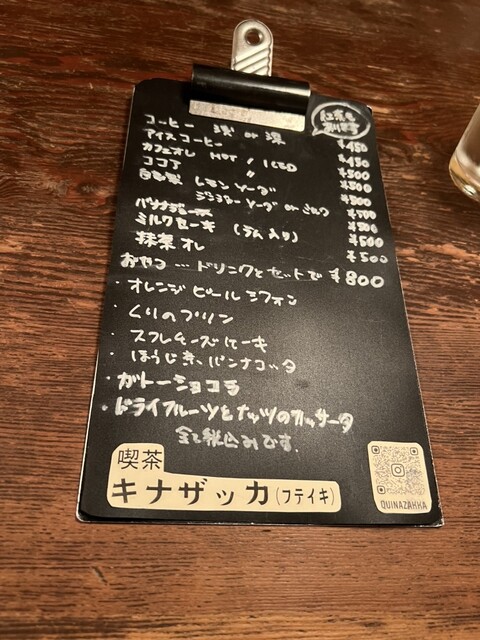 紅茶も
あります
コーヒー 浅 or 深 ¥450
アイスコーヒー ¥450
カフェオレ HOT / ICED ¥500
ココア 〃 ¥500
自家製 レモンソーダ ¥500
ジンジャーソーダ or ミルク ¥500
バナナジュース ¥500
ミルクセーキ (ラム入り) ¥500
抹茶オレ ¥500
おやつ … ドリンクとセットで ¥800
・オレンジピールシフォン
・くりのプリン
・スフレチーズケーキ
・ほうじ茶パンナコッタ
・ガトーショコラ
・ドライフルーツとナッツのカッサータ
全て税込みです。
喫茶
キナザッカ(フテイキ)
QUINAZAKKA